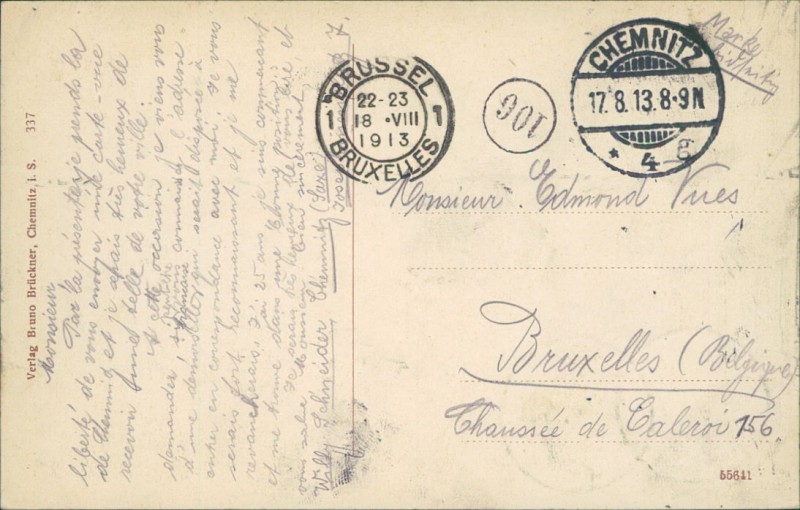 Monsieur
Par la présente je prends la
liberté de vous envoyer une carte-vue
de Chemnitz et je serais très heureux de
recevoir telle de votre ville.
A cette occasion je viens vous
demander, si vous connaissez l'adresse
d'une demoiselle, qui serait disposée à
entrer en correspondance avec moi. Je vous
serais fort reconnaissant et je me
revancherais. J'ai 25 ans, je suis commerçant
et me trouve dans une bonne position.
vous salue
Willy Schneider Chemnitz (Saxe)
Verlag Bruno Brückner, Chemnitz, i. S. 337
BRÜSSEL
1 22-23 1
18 ·VIII
1913
BRUXELLES
106
CHEMNITZ
17.8.13.8-9N
* 4
Marke
Monsieur Edmond Vues
Bruxelles (Belgique)
Chaussée de Caleroi 156
55611